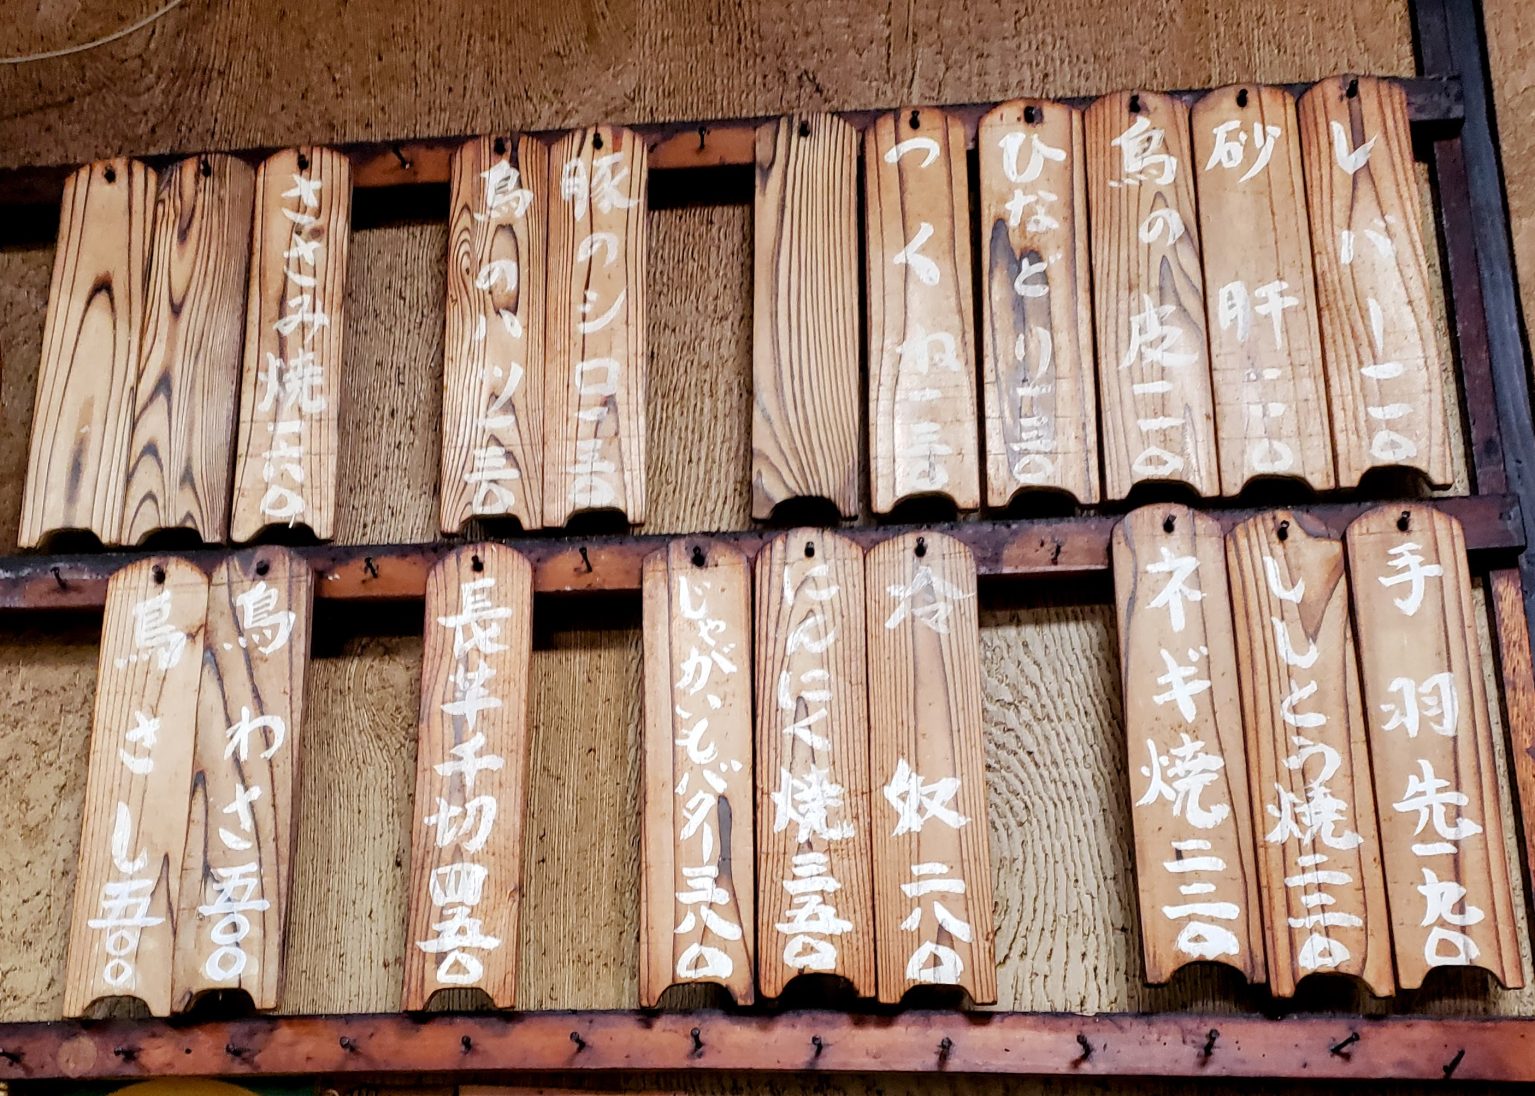 レバー一一〇
砂肝一一〇
鳥の皮一一〇
ひなどり一三〇
つくね一三〇
豚のシロ一三〇
鳥のハツ一三〇
ささみ焼一六〇
手羽先一九〇
ししとう焼二二〇
ネギ焼二二〇
冷奴二八〇
にんにく焼三五〇
じゃがいもバター三八〇
長芋千切四五〇
鳥わさ五〇〇
鳥さし五〇〇